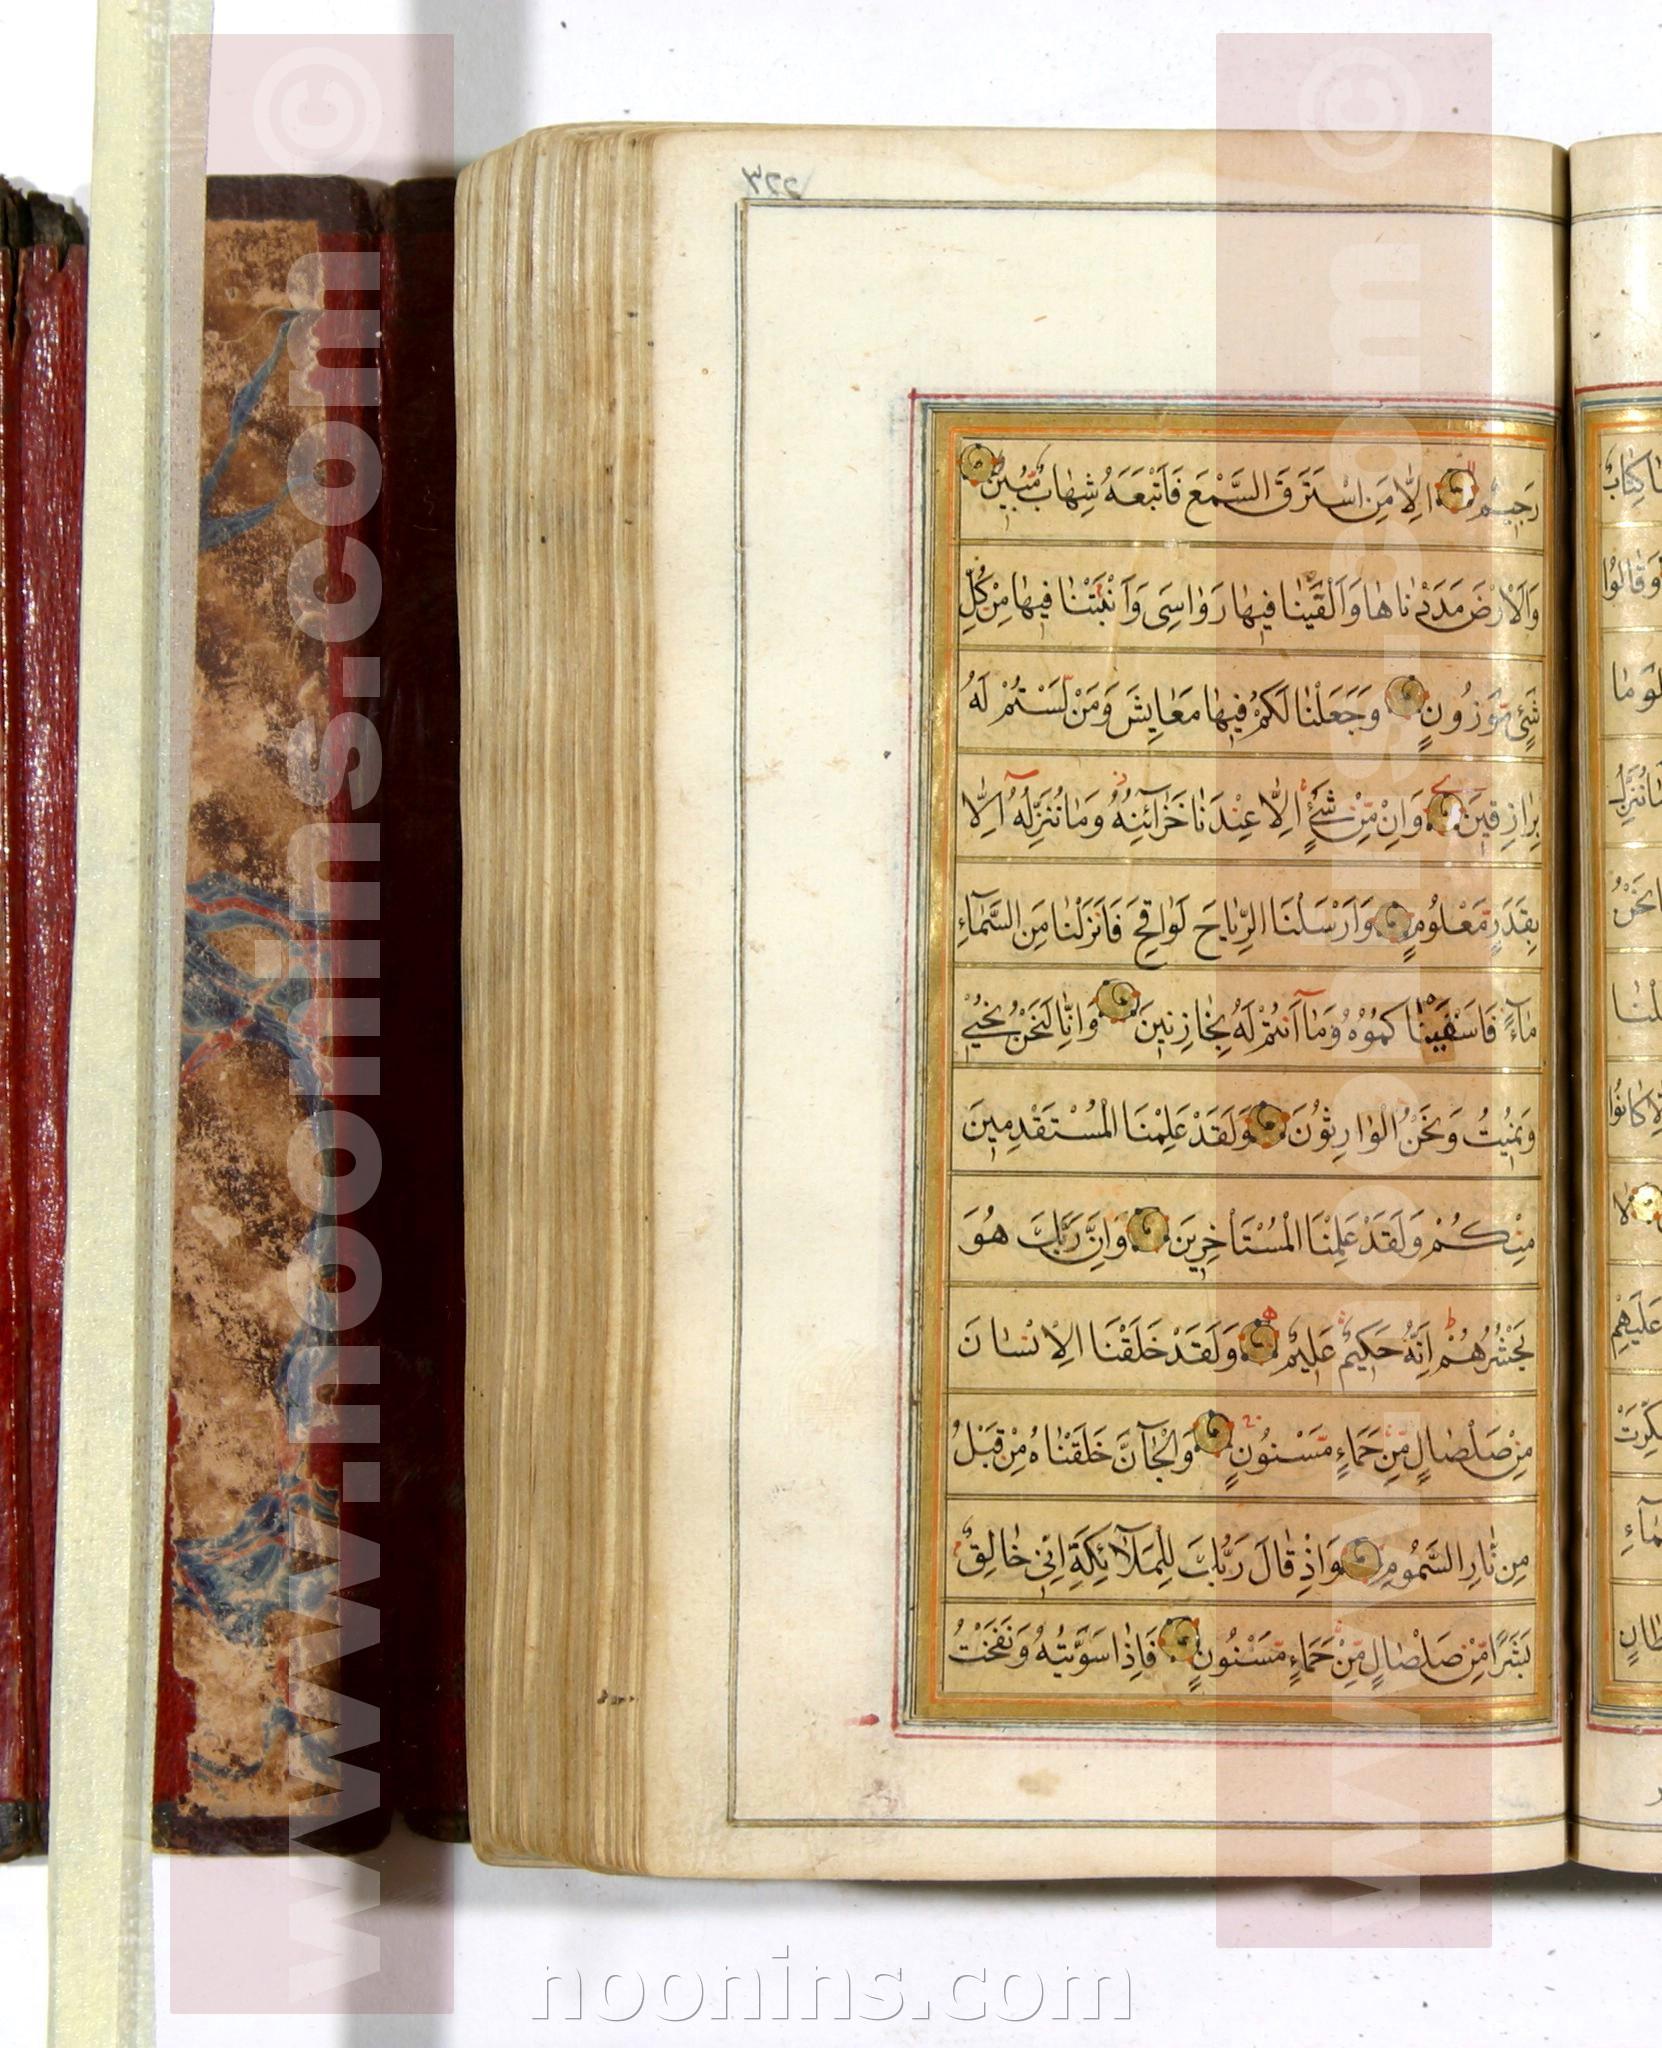 رَجِيمٍ اِلَّا مَنِ اسْتَرَقَ السَّمْعَ فَاَتْبَعَهُ شِهَابٌ مُبِينٌ
وَالْاَرْضَ مَدَدْنَاهَا وَاَلْقَيْنَا فِيهَا رَوَاسِىَ وَاَنْبَتْنَا فِيهَا مِنْ كُلِّ
شَىْءٍ مَوْزُونٍ وَجَعَلْنَا لَكُمْ فِيهَا مَعَايِشَ وَمَنْ لَسْتُمْ لَهُ
بِرَازِقِينَ وَاِنْ مِنْ شَىْءٍ اِلَّا عِنْدَنَا خَزَآئِنُهُ وَمَا نُنَزِّلُهُ اِلَّا
بِقَدَرٍ مَعْلُومٍ وَاَرْسَلْنَا الرِّيَاحَ لَوَاقِحَ فَاَنْزَلْنَا مِنَ السَّمَآءِ
مَآءً فَاَسْقَيْنَاكُمُوهُ وَمَآ اَنْتُمْ لَهُ بِخَازِنِينَ وَاِنَّا لَنَحْنُ نُحْيِي
وَنُمِيتُ وَنَحْنُ الْوَارِثُونَ وَلَقَدْ عَلِمْنَا الْمُسْتَقْدِمِينَ
مِنْكُمْ وَلَقَدْ عَلِمْنَا الْمُسْتَاْخِرِينَ وَاِنَّ رَبَّكَ هُوَ
يَحْشُرُهُمْ اِنَّهُ حَكِيمٌ عَلِيمٌ وَلَقَدْ خَلَقْنَا الْاِنْسَانَ
مِنْ صَلْصَالٍ مِنْ حَمَاءٍ مَسْنُونٍ وَالْجَآنَّ خَلَقْنَاهُ مِنْ قَبْلُ
مِنْ نَارِ السَّمُومِ وَاِذْ قَالَ رَبُّكَ لِلْمَلَآئِكَةِ اِنِّى خَالِقٌ
بَشَرًا مِنْ صَلْصَالٍ مِنْ حَمَاءٍ مَسْنُونٍ فَاِذَا سَوَّيْتُهُ وَنَفَخْتُ
www.noonins.com ©
www.noonins.com ©
noonins.com